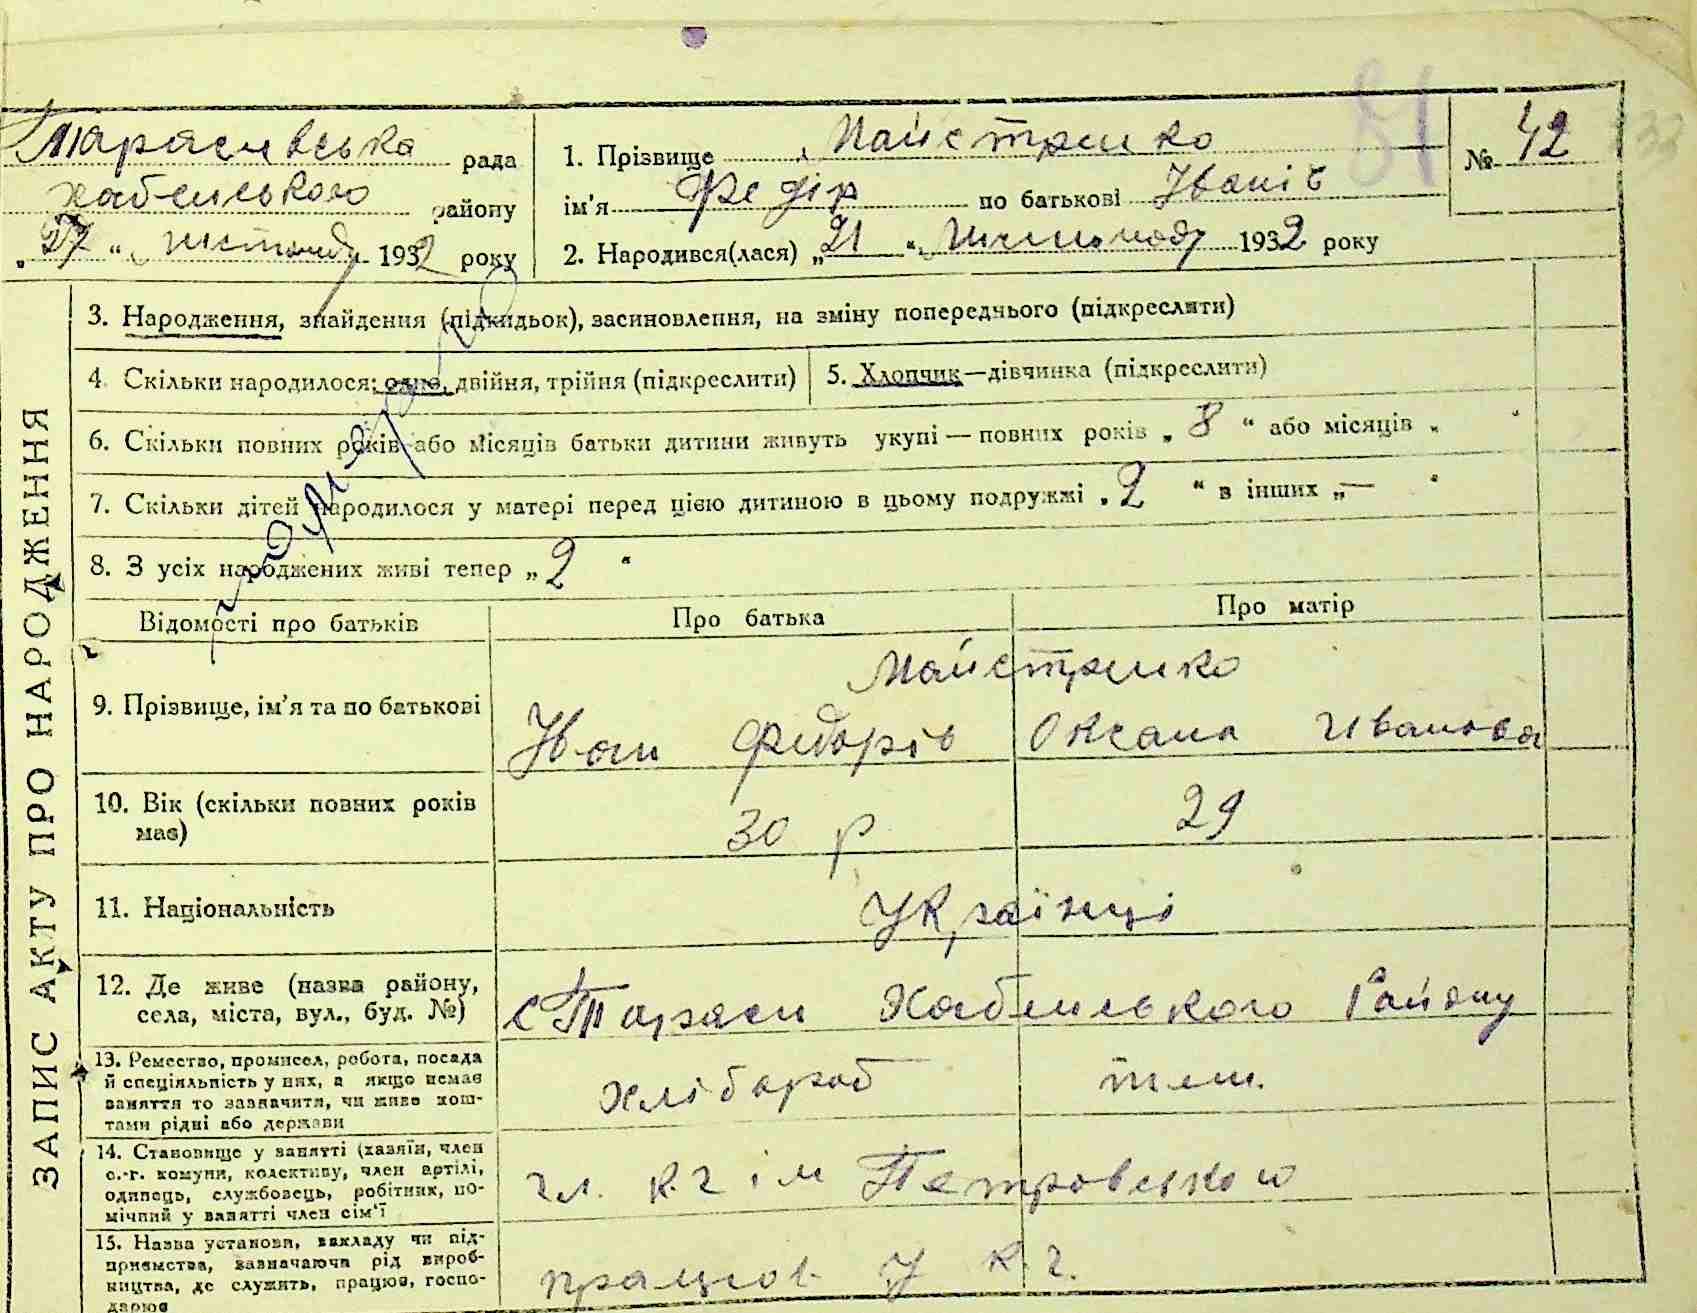 81
32
Тарасивська рада
Хабенського району
„27“ листопаду 1932 року
1. Прізвище Майстренко
ім'я Федір по батькові Іванів
2. Народився(лася) „21“ листопаду 1932 року
№ 42
ЗАПИС АКТУ ПРО НАРОДЖЕННЯ
3. Народження, знайдення (підкидьок), засиновлення, на зміну попереднього (підкреслити)
4. Скільки народилося: одно, двійня, трійня (підкреслити)
5. Хлопчик—дівчинка (підкреслити)
6. Скільки повних років або місяців батьки дитини живуть укупі — повних років „ 8 “ або місяців „ “
7. Скільки дітей народилося у матері перед цією дитиною в цьому подружжі „ 2 “ в інших „ — “
8. З усіх народжених живі тепер „ 2 “
Відомості про батьків
Про батька
Про матір
9. Прізвище, ім'я та по батькові
Майстренко
Іван Федорів
Оксана Иванова
10. Вік (скільки повних років
має)
30 р
29
11. Національність
Українці
12. Де живе (назва району,
села, міста, вул., буд. №)
с Тараси Хабенського Району
13. Ремество, промисел, робота, посада
й спеціяльність у них, а якщо немає
заняття то зазначити, чи живе кош-
тами рідні або держави
хлібороб
теж.
14. Становище у занятті (хазяїн, член
с.-г. комуни, колективу, член артілі,
одинець, службовець, робітник, по-
мічний у занятті член сім'ї
чл. к.г ім Петровського
15. Назва установи, закладу чи під-
приємства, зазначаючи рід вироб-
ництва, де служить, працює, госпо-
дарює
працює у к.г.